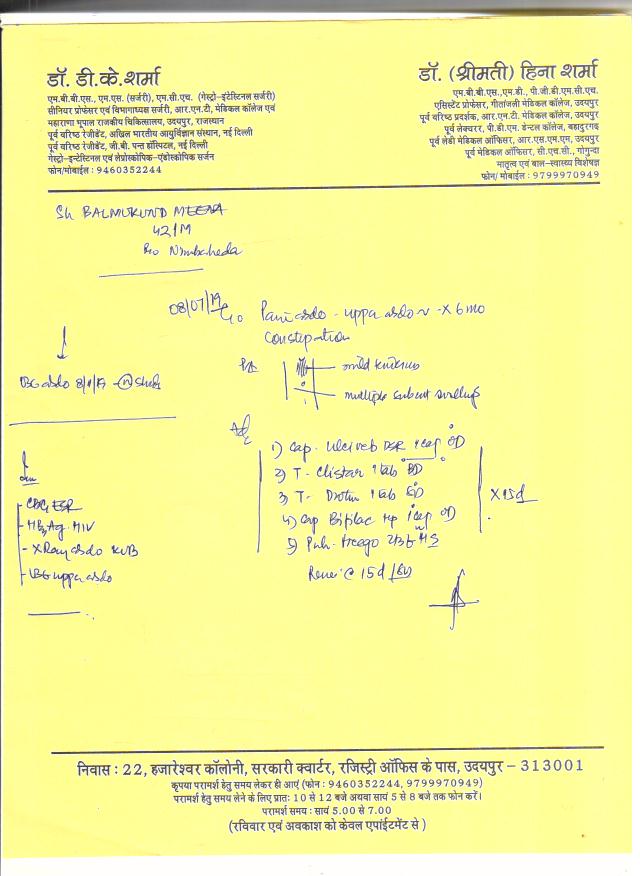 डॉ. डी.के.शर्मा
एम.बी.बी.एस., एम.एस. (सर्जरी), एम.सी.एच. (गेस्ट्रो-इंटेस्टिनल सर्जरी)
सीनियर प्रोफेसर एवं विभागाध्यक्ष सर्जरी, आर.एन.टी. मेडिकल कॉलेज एवं
महाराणा भूपाल राजकीय चिकित्सालय, उदयपुर, राजस्थान
पूर्व वरिष्ठ रेजीडेंट, अखिल भारतीय आयुर्विज्ञान संस्थान, नई दिल्ली
पूर्व वरिष्ठ रेजीडेंट, जी.बी. पन्त हॉस्पिटल, नई दिल्ली
गेस्ट्रो-इन्टेस्टिनल एवं लेप्रोस्कोपिक-एंडोस्कोपिक सर्जन
फोन/मोबाईल : 9460352244
डॉ. (श्रीमती) हिना शर्मा
एम.बी.बी.एस., एम.डी., पी.जी.डी.एम.सी.एच.
एसिस्टेंट प्रोफेसर, गीतांजली मेडिकल कॉलेज, उदयपुर
पूर्व वरिष्ठ प्रदर्शक, आर.एन.टी. मेडिकल कॉलेज, उदयपुर
पूर्व लेक्चरर, पी.डी.एम. डेन्टल कॉलेज, बहादुरगढ़
पूर्व लेडी मेडिकल ऑफिसर, आर.एस.एम.एम, उदयपुर
पूर्व मेडिकल ऑफिसर, सी.एच.सी., गोगुन्दा
मातृत्व एवं बाल-स्वास्थ्य विशेषज्ञ
फोन/ मोबाईल : 9799970949
Sh BALMUKUND MEENA
42/M
R/o Nimbaheda
08/07/19
C/o Pain abdo - upper abdo - X 6 mo
Constipation
P/A
mild tenderness
multiple subcut swellings
USG abdo
Adv
1) Cap. DSR 1 cap OD
2) T- Clistar 1 tab BD
3) T- Drotin 1 tab BD
4) Cap Bifilac HP 1 cap OD
5) HS
X 15d
15d
CBC, ESR
HBsAg HIV
X Ray abdo KUB
USG upper abdo
निवास : 22, हजारेश्वर कॉलोनी, सरकारी क्वार्टर, रजिस्ट्री ऑफिस के पास, उदयपुर – 313001
कृपया परामर्श हेतु समय लेकर ही आएं (फोन : 9460352244, 9799970949)
परामर्श हेतु समय लेने के लिए प्रातः 10 से 12 बजे अथवा सायं 5 से 8 बजे तक फोन करें।
परामर्श समय : सायं 5.00 से 7.00
(रविवार एवं अवकाश को केवल एपांईटमेंट से )